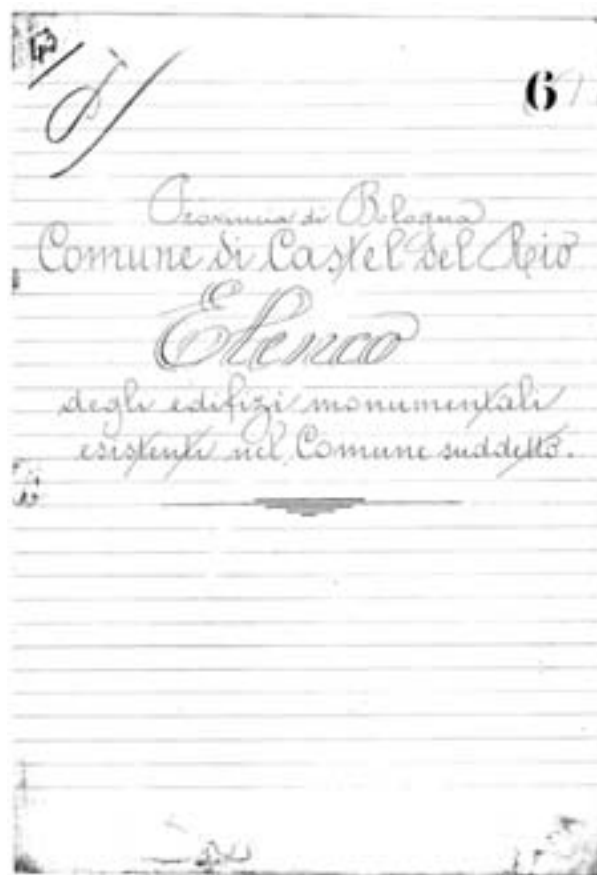 6
Provincia di Bologna
Comune di Castel del Rio
Elenco
degli edifizi monumentali
esistenti nel Comune suddetto.